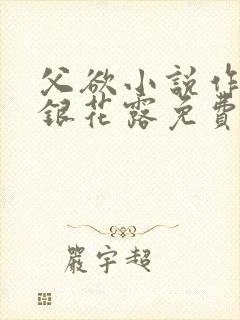 父欲小说作
銀花露免費
嚴宇超